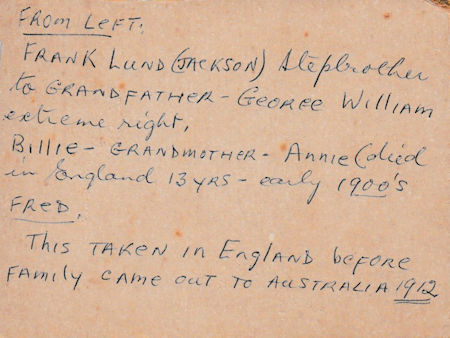 FROM LEFT:
FRANK LUND (JACKSON) Stepbrother
to GRANDFATHER - GEORGE William
extreme right,
Billie - GRANDMOTHER - Annie (died
in England 13 YRS - early 1900's
FRED.
This TAKEN in England before
FAMILY CAME OUT TO AUSTRALIA 1912